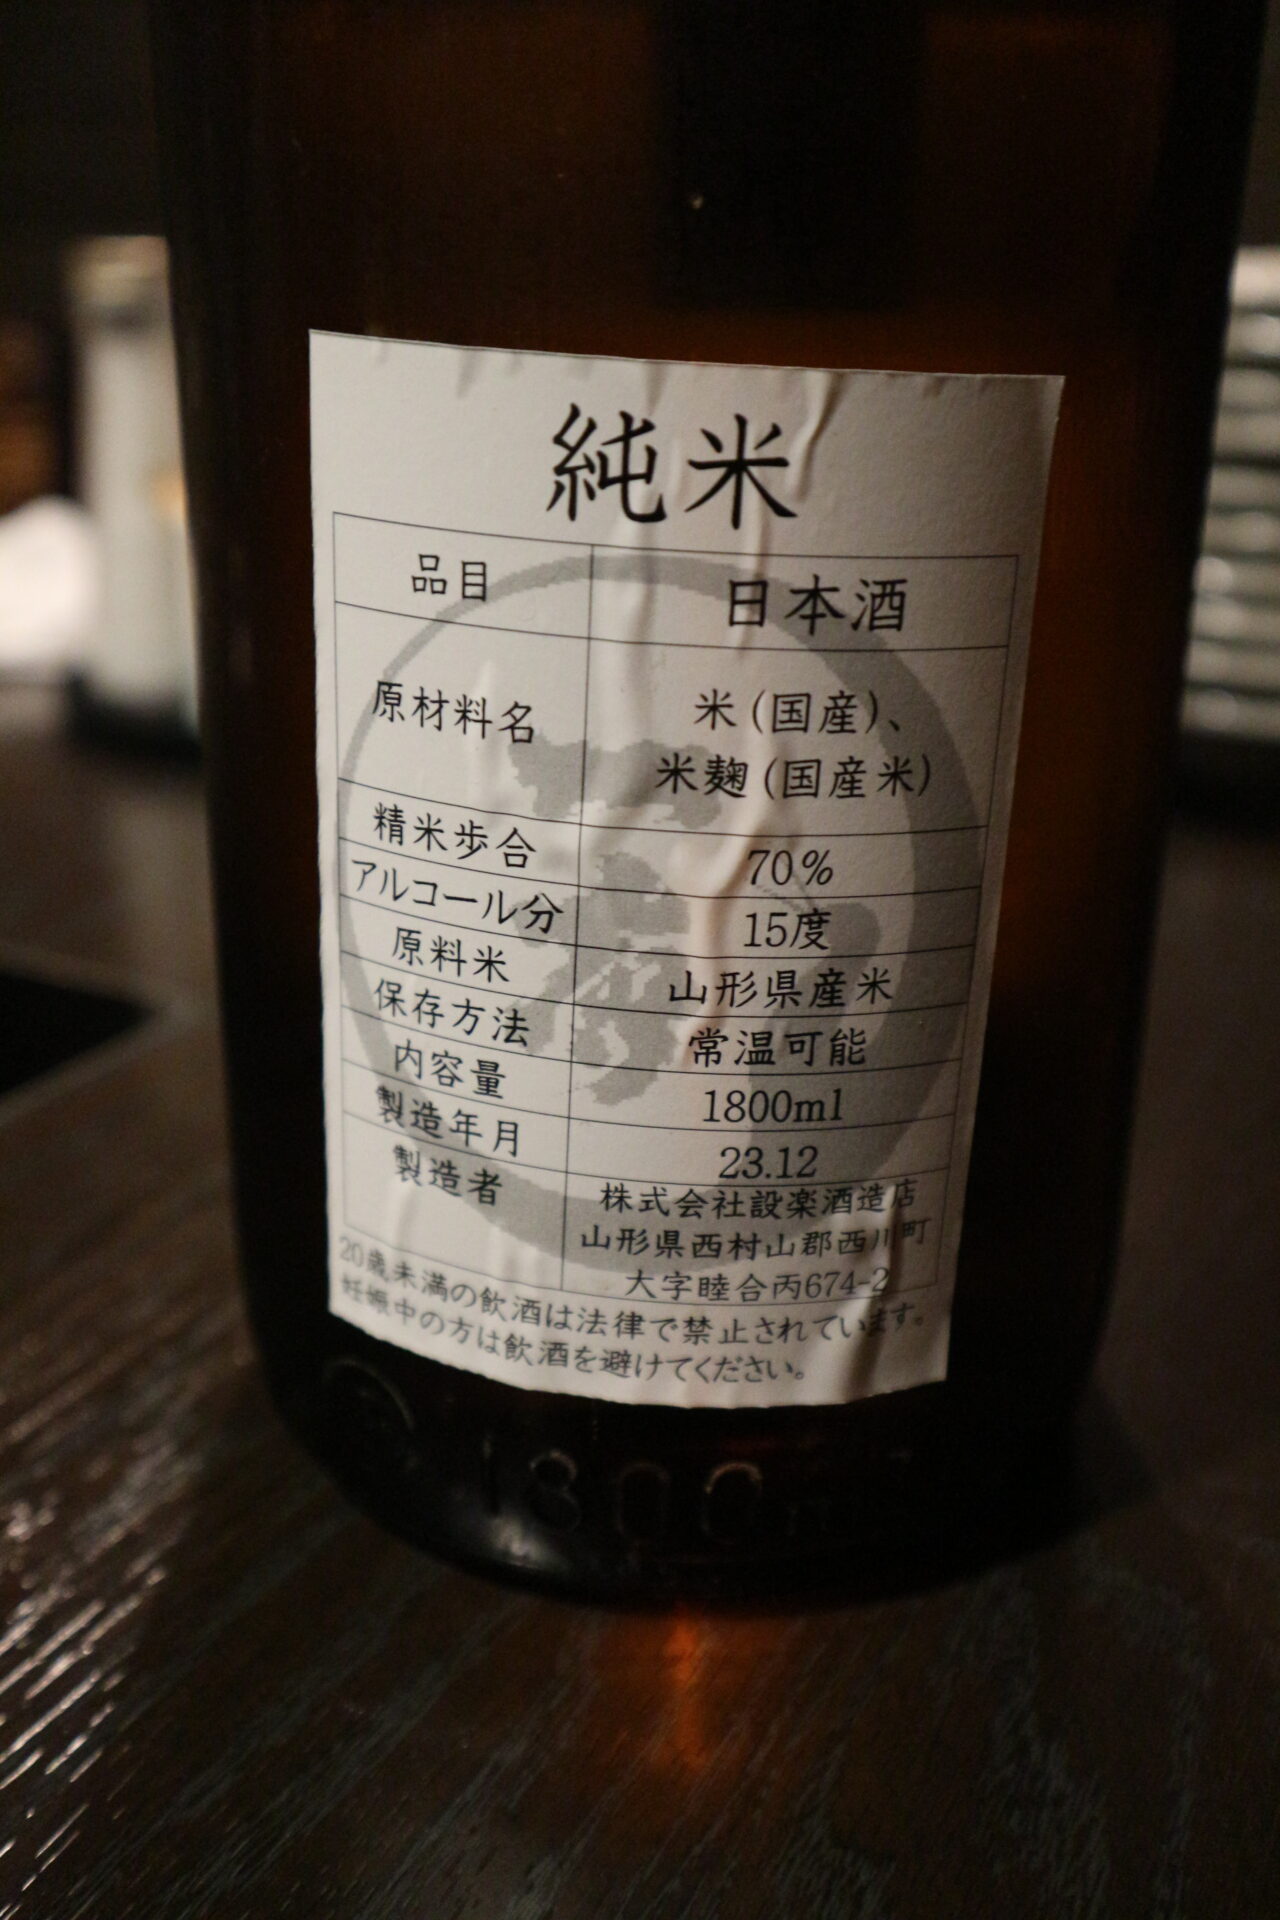 純米
品目 日本酒
原材料名 米(国産)、
米麹(国産米)
精米歩合 70%
アルコール分 15度
原料米 山形県産米
保存方法 常温可能
内容量 1800ml
製造年月 23.12
製造者 株式会社設楽酒造店
山形県西村山郡西川町
大字睦合丙674-2
20歳未満の飲酒は法律で禁止されています。
妊娠中の方は飲酒を避けてください。
1800